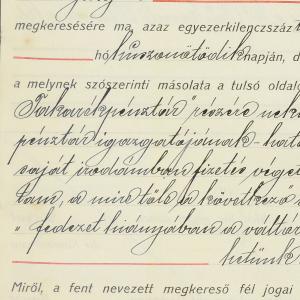 megkeresésére ma, azaz egyezerkilenczszáz
hó huszonötödik napján, d
a melynek szószerinti másolata a tulsó oldal
Takarékpénztár" részére nek
pénztár igazgatójának - hat
saját irodámban fizetés vége
tam, a mire tőle a következő
"fedezet hiányában a váltó
fizetünk
Miről, a fent nevezett megkereső fél jogai